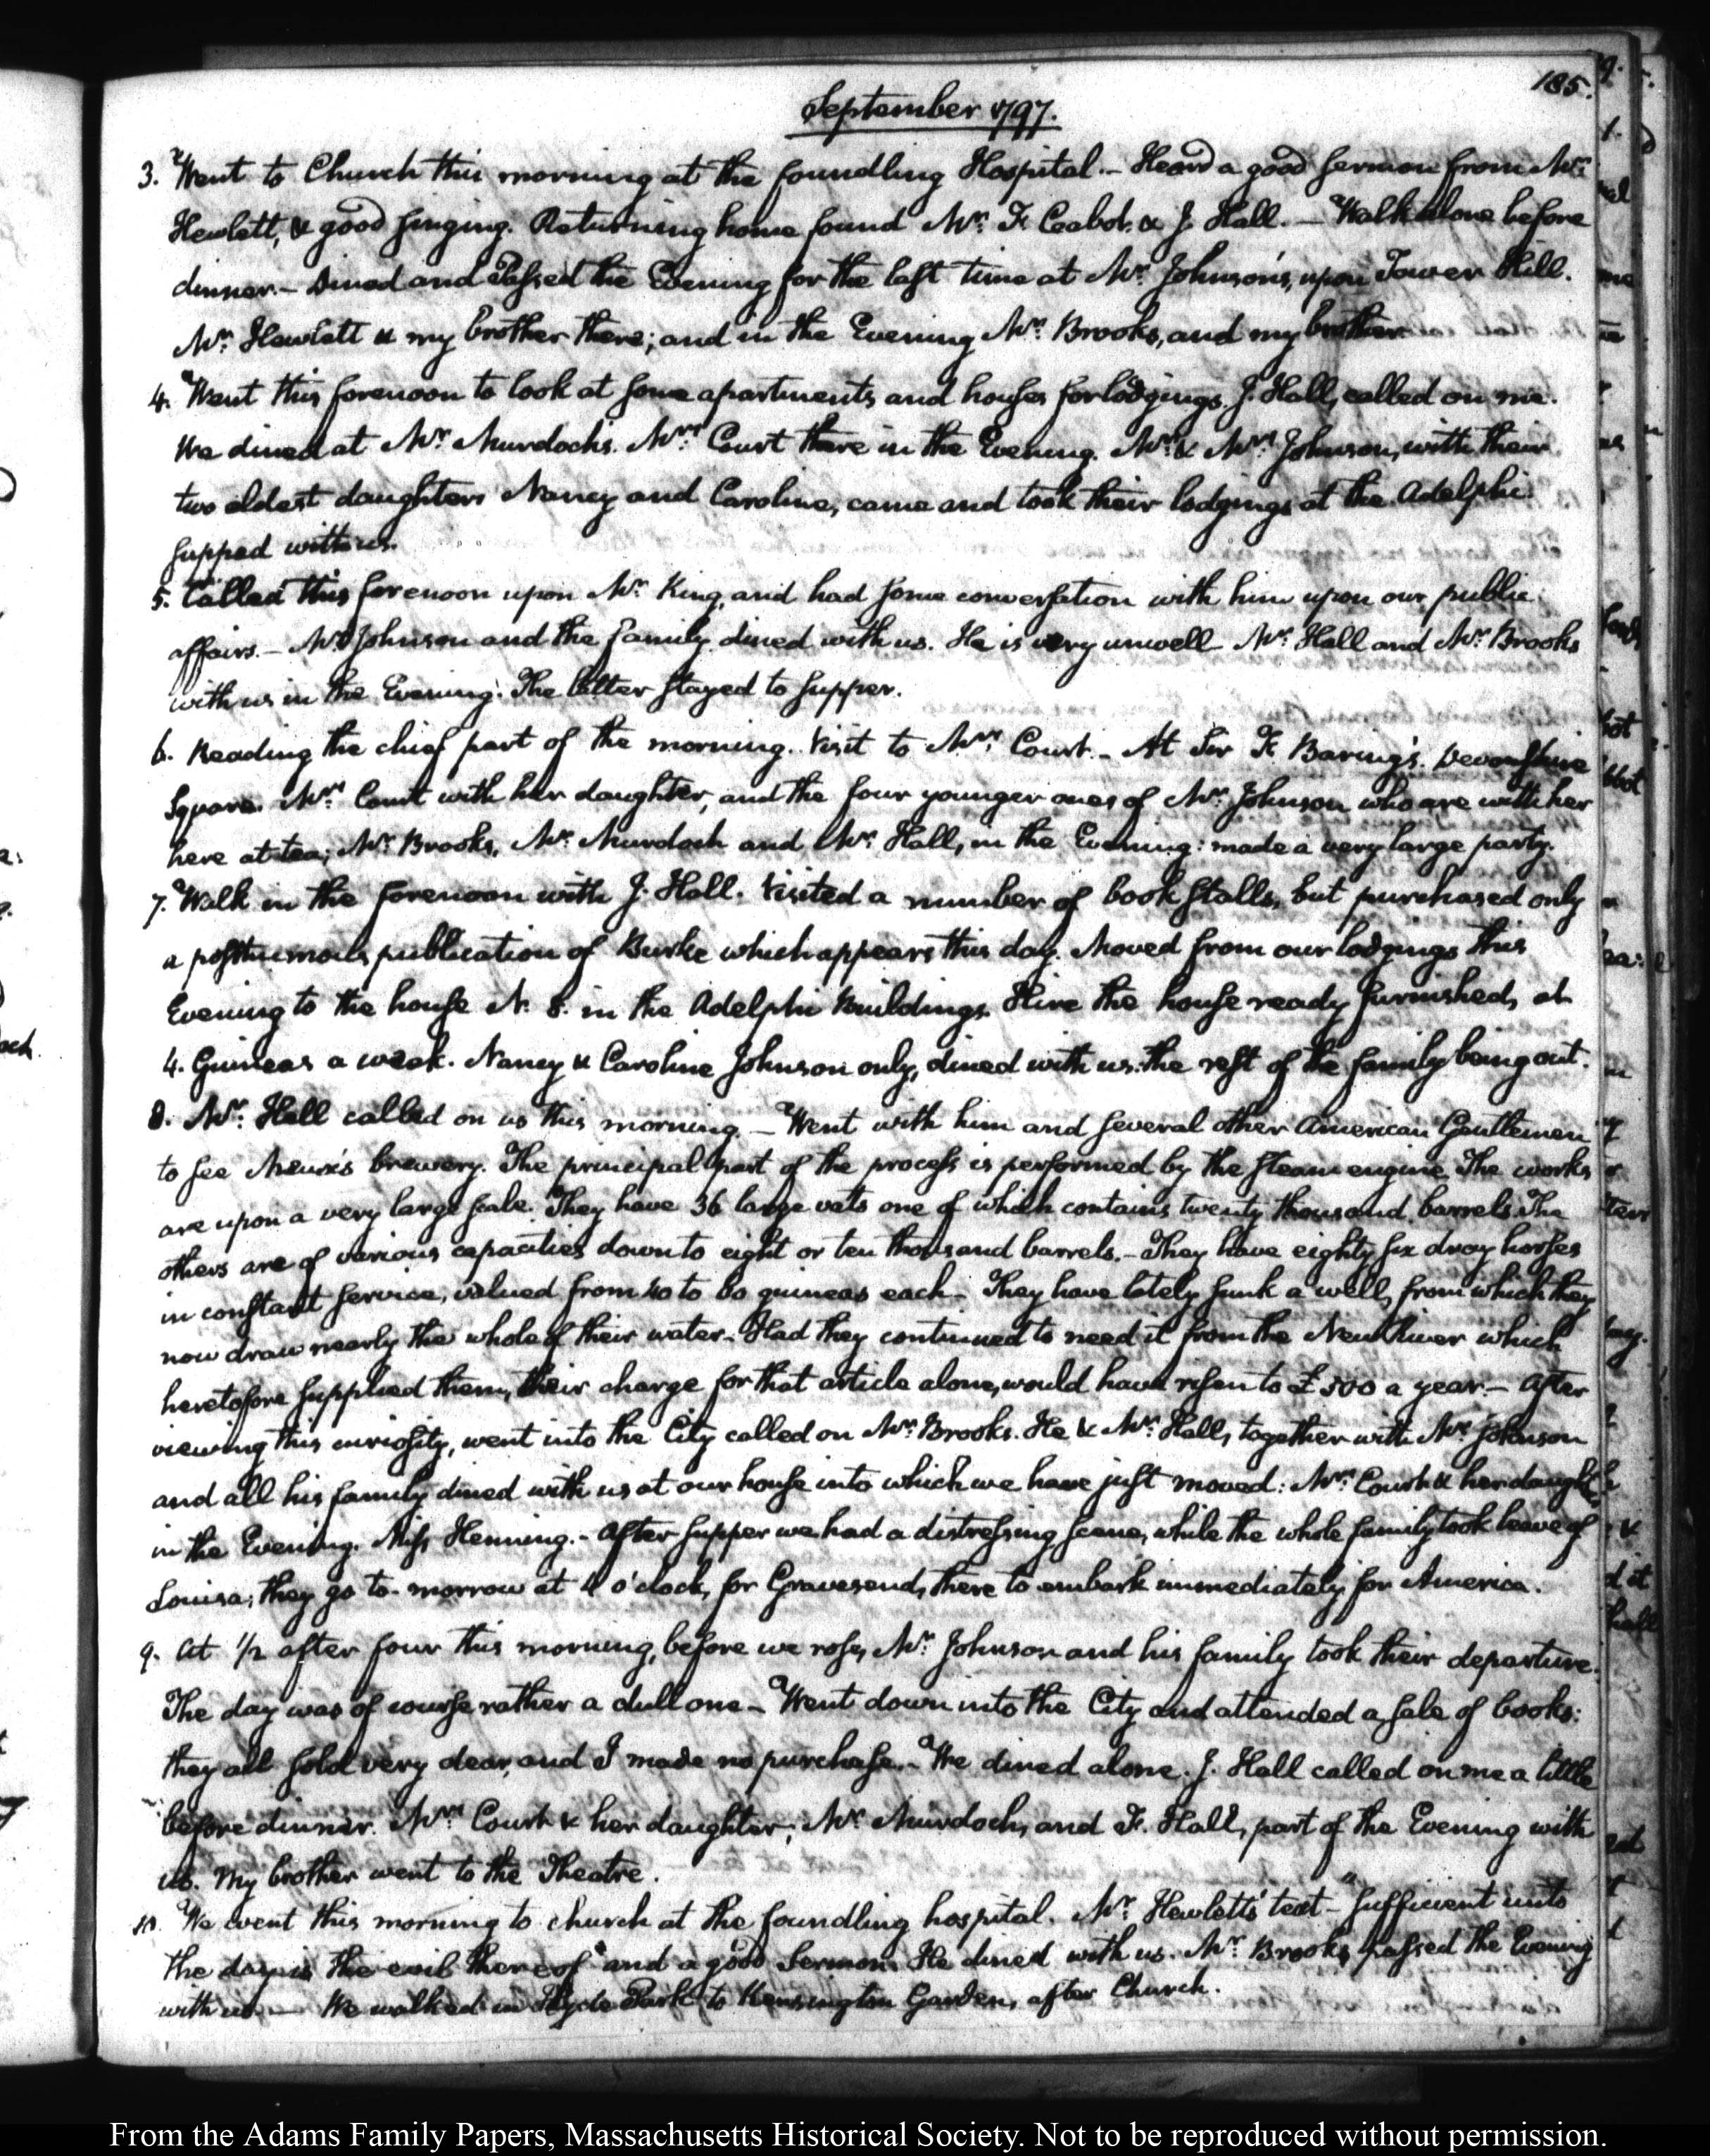 185.
September 1797.
3. Went to Church this morning at the foundling Hospital.— Heard a good sermon from Mr:
Hewlett, & good singing. Returning home found Mr: F. Cabot. & J. Hall.— Walk alone before
dinner.— Dined and passed the Evening for the last time at Mr: Johnson's, upon Tower Hill.
Mr: Hewlett & my brother there; and in the Evening Mr: Brooks, and my brother
4. Went this forenoon to look at some apartments and houses for lodgings. J. Hall, called on me.
We dined at Mr: Murdoch's. Mrs: Court there in the Evening. Mr: & Mrs: Johnson, with their
two eldest daughters Nancy and Caroline, came and took their lodgings at the Adelphi.
supped with us.
5. Called this forenoon upon Mr: King, and had some conversation with him upon our public
affairs.— Mr: Johnson and the family dined with us. He is very unwell. Mr: Hall and Mr: Brooks
with us in the Evening. The latter stayed to supper.
6. Reading the chief part of the morning. Visit to Mrs: Court.— At Sir F. Baring's. Devonshire
Square. Mrs: Court with her daughter, and the four younger ones of Mr: Johnson who are with her
here at tea; Mr: Brooks, Mr: Murdoch and Mr: Hall, in the Evening: made a very large party.
7. Walk in the forenoon with J. Hall. Visited a number of book stalls, but purchased only
a posthumous publication of Burke which appears this day. Moved from our lodgings this
Evening to the house N. 8. in the Adelphi Buildings. Hire the house ready furnished, at
4. Guineas a week. Nancy & Caroline Johnson only, dined with us. the rest of the family being out.
8. Mr: Hall called on us this morning.— Went with him and several other American Gentlemen
to see Meux's brewery. The principal part of the process is performed by the steam engine. The works
are upon a very large scale. They have 36 large vats one of which contains twenty thousand barrels. The
others are of various capacities down to eight or ten thousand barrels.— They have eighty six dray horses
in constant service, valued from 40 to 60 guineas each.— They have lately sunk a well, from which they
now draw nearly the whole of their water.— Had they continued to need it from the New River which
heretofore supplied them, their charge for that article alone, would have risen to £500 a year.— After
viewing this curiosity, went into the City called on Mr: Brooks. He & Mr: Hall, together with Mr: Johnson
and all his family dined with us at our house into which we have just moved: Mrs: Court & her daught
in the Evening. Miss Henning.— After supper we had a distressing scene, while the whole family took leave of
Louisa; they go to-morrow at 4 o'clock, for Gravesend, there to embark immediately for America.
9. At 1/2 after four this morning, before we rose, Mr: Johnson and his family took their departure.
The day was of course rather a dull one— Went down into the City and attended a sale of books:
they all sold very dear, and I made no purchase.— We dined alone. J. Hall called on me a little
before dinner. Mrs: Court & her daughter; Mr: Murdoch, and F. Hall, part of the Evening with
us. My brother went to the Theatre.
10. We went this morning to church at the foundling hospital. Mr: Hewlett's text— "Sufficient unto
the day is the evil thereof" and a good Sermon. He dined with us. Mr: Brooks passed the Evening
with us.— We walked in Hyde Park to Kensington Garden, after Church.
From the Adams Family Papers, Massachusetts Historical Society. Not to be reproduced without permission.